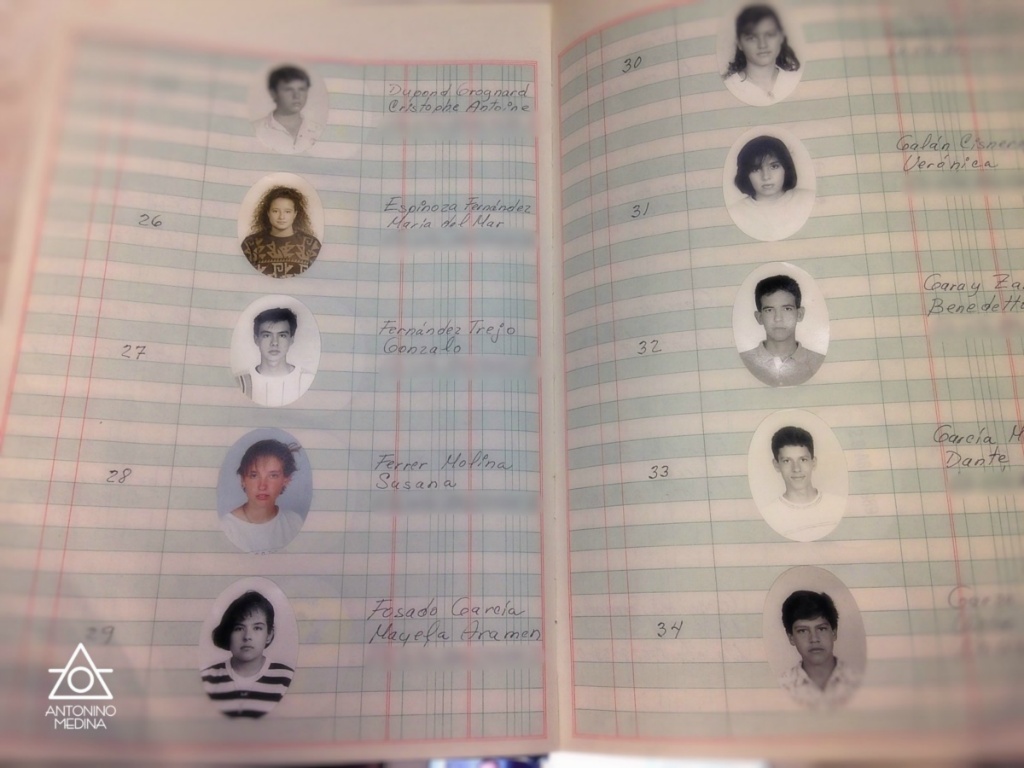 Dupond Grognard
Cristophe Antoine
26
Espinoza Fernández
María del Mar
27
Fernández Trejo
Gonzalo
28
Ferrer Molina
Susana
29
Fosado García
Mayela Aramen
30
31
Galán Cisner
Verónica
32
Garay Za
Benedetto
33
García M
Dante
34
ANTONINO
MEDINA